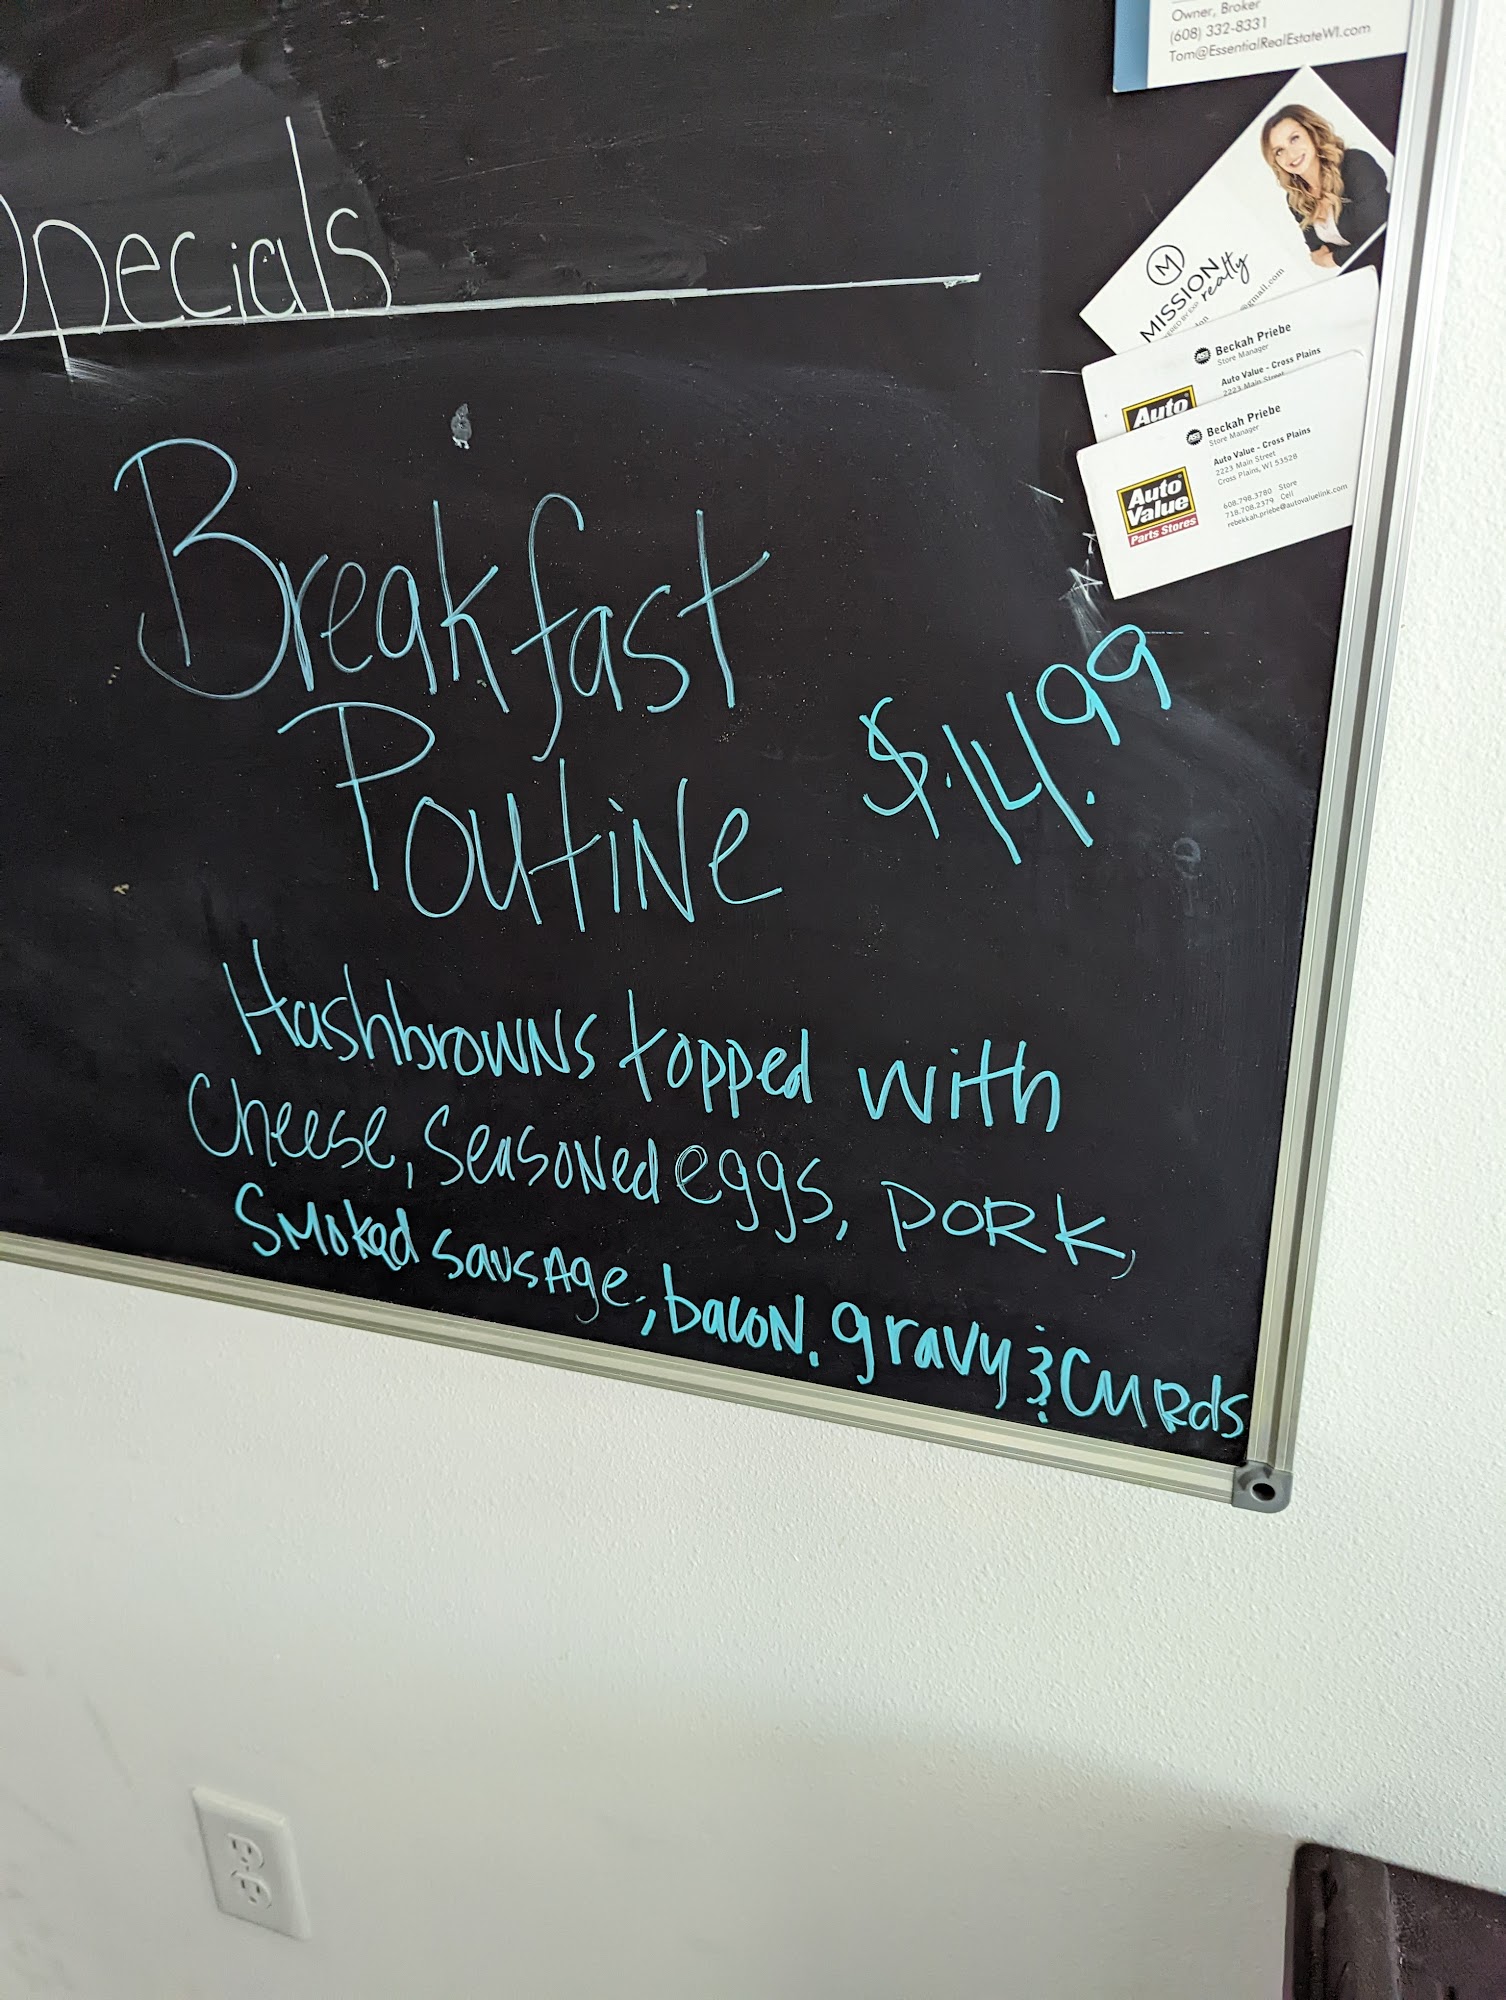 Specials
Breakfast
Poutine
$.14.99
Hashbrowns topped with
Cheese, seasoned eggs, pork,
Smoked sausage, bacon. gravy & Curds
Owner, Broker
(608) 332-8331
Tom@EssentialRealEstateWI.com
M
MISSION
realty
@gmail.com
Beckah Priebe
Store Manager
Auto Value - Cross Plains
2223 Main Street
Auto
Beckah Priebe
Store Manager
Auto Value - Cross Plains
2223 Main Street
Cross Plains, WI 53528
608.798.3780 Store
718.708.2379 Cell
rebekkah.priebe@autovaluelink.com
Auto
Value
Parts Stores